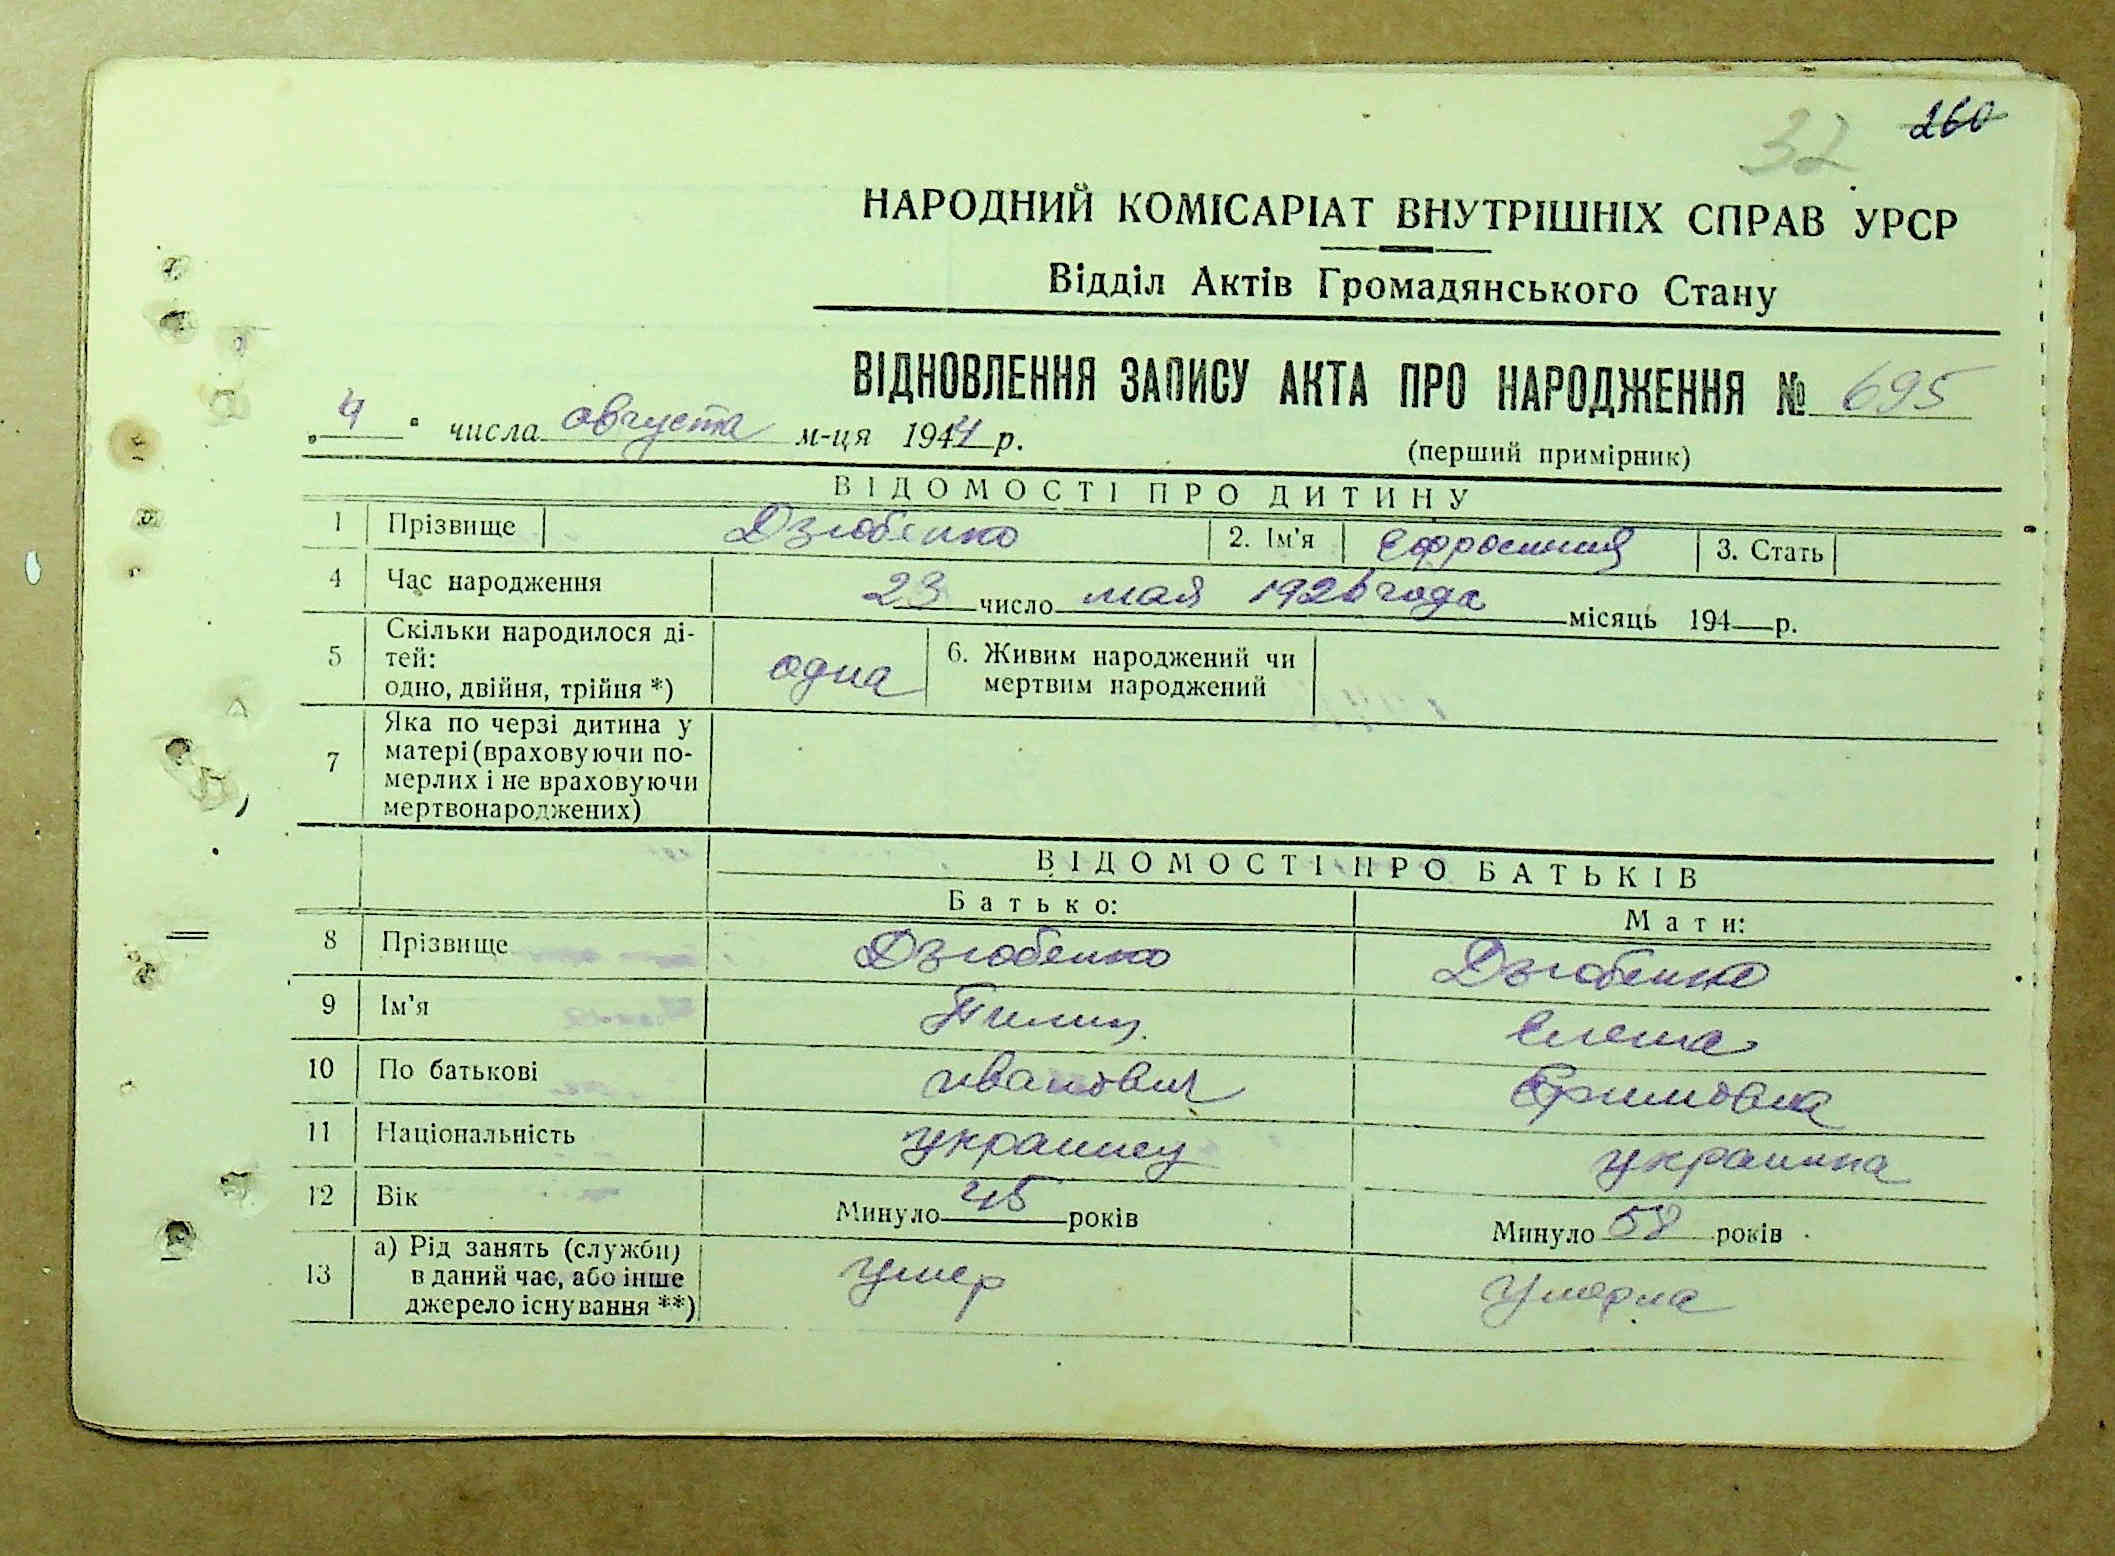 32 260
НАРОДНИЙ КОМІСАРІАТ ВНУТРІШНІХ СПРАВ УРСР
Відділ Актів Громадянського Стану
ВІДНОВЛЕННЯ ЗАПИСУ АКТА ПРО НАРОДЖЕННЯ № 695
„4" числа августа м-ця 1944 р.
(перший примірник)
ВІДОМОСТІ ПРО ДИТИНУ
1 Прізвище Дзюбенко 2. Ім'я Ефросиния 3. Стать
4 Час народження 23 число мая 1926 года місяць 194 р.
5 Скільки народилося ді-
тей:
одно, двійня, трійня *) одна 6. Живим народжений чи
мертвим народжений
7 Яка по черзі дитина у
матері (враховуючи по-
мерлих і не враховуючи
мертвонароджених)
ВІДОМОСТІ ПРО БАТЬКІВ
Батько: Мати:
8 Прізвище Дзюбенко Дзюбенко
9 Ім'я Пилип Елена
10 По батькові иванович Ефимовна
11 Національність украинец украинка
12 Вік Минуло 45 років Минуло 58 років
13 а) Рід занять (служби)
в даний час, або інше
джерело існування **) умер умерла